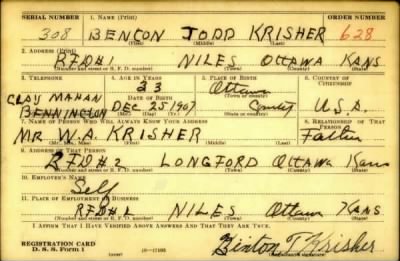 SERIAL NUMBER 1. NAME (Print) ORDER NUMBER
308 BENTON TODD KRISHER 628
(First) (Middle) (Last)
2. ADDRESS (Print)
RFD#1 NILES OTTAWA KANS
(Number and street or R. F. D. number) (Town) (County) (State)
3. TELEPHONE 4. AGE IN YEARS 5. PLACE OF BIRTH 6. COUNTRY OF CITIZENSHIP
33 Ottawa
CLAY MAHAN DATE OF BIRTH
BENNINGTON DEC 25 1907 County U.S.A.
7. NAME OF PERSON WHO WILL ALWAYS KNOW YOUR ADDRESS 8. RELATIONSHIP OF THAT PERSON
MR W.A. KRISHER Father
(Mr., Mrs., Miss) (First) (Middle) (Last)
9. ADDRESS OF THAT PERSON
RFD#2 LONGFORD OTTAWA Kans
(Number and street or R. F. D. number) (Town) (County) (State)
10. EMPLOYER'S NAME
Self
11. PLACE OF EMPLOYMENT OR BUSINESS
RFD#1 NILES Ottawa KANS
(Number and street or R. F. D. number) (Town) (County) (State)
I AFFIRM THAT I HAVE VERIFIED ABOVE ANSWERS AND THAT THEY ARE TRUE.
REGISTRATION CARD
D. S. S. Form 1 Binton T. Krisher
(Registrant's signature)